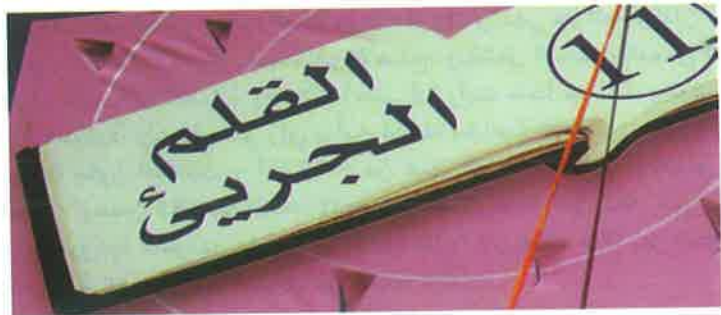 القلم
الجريئ
11